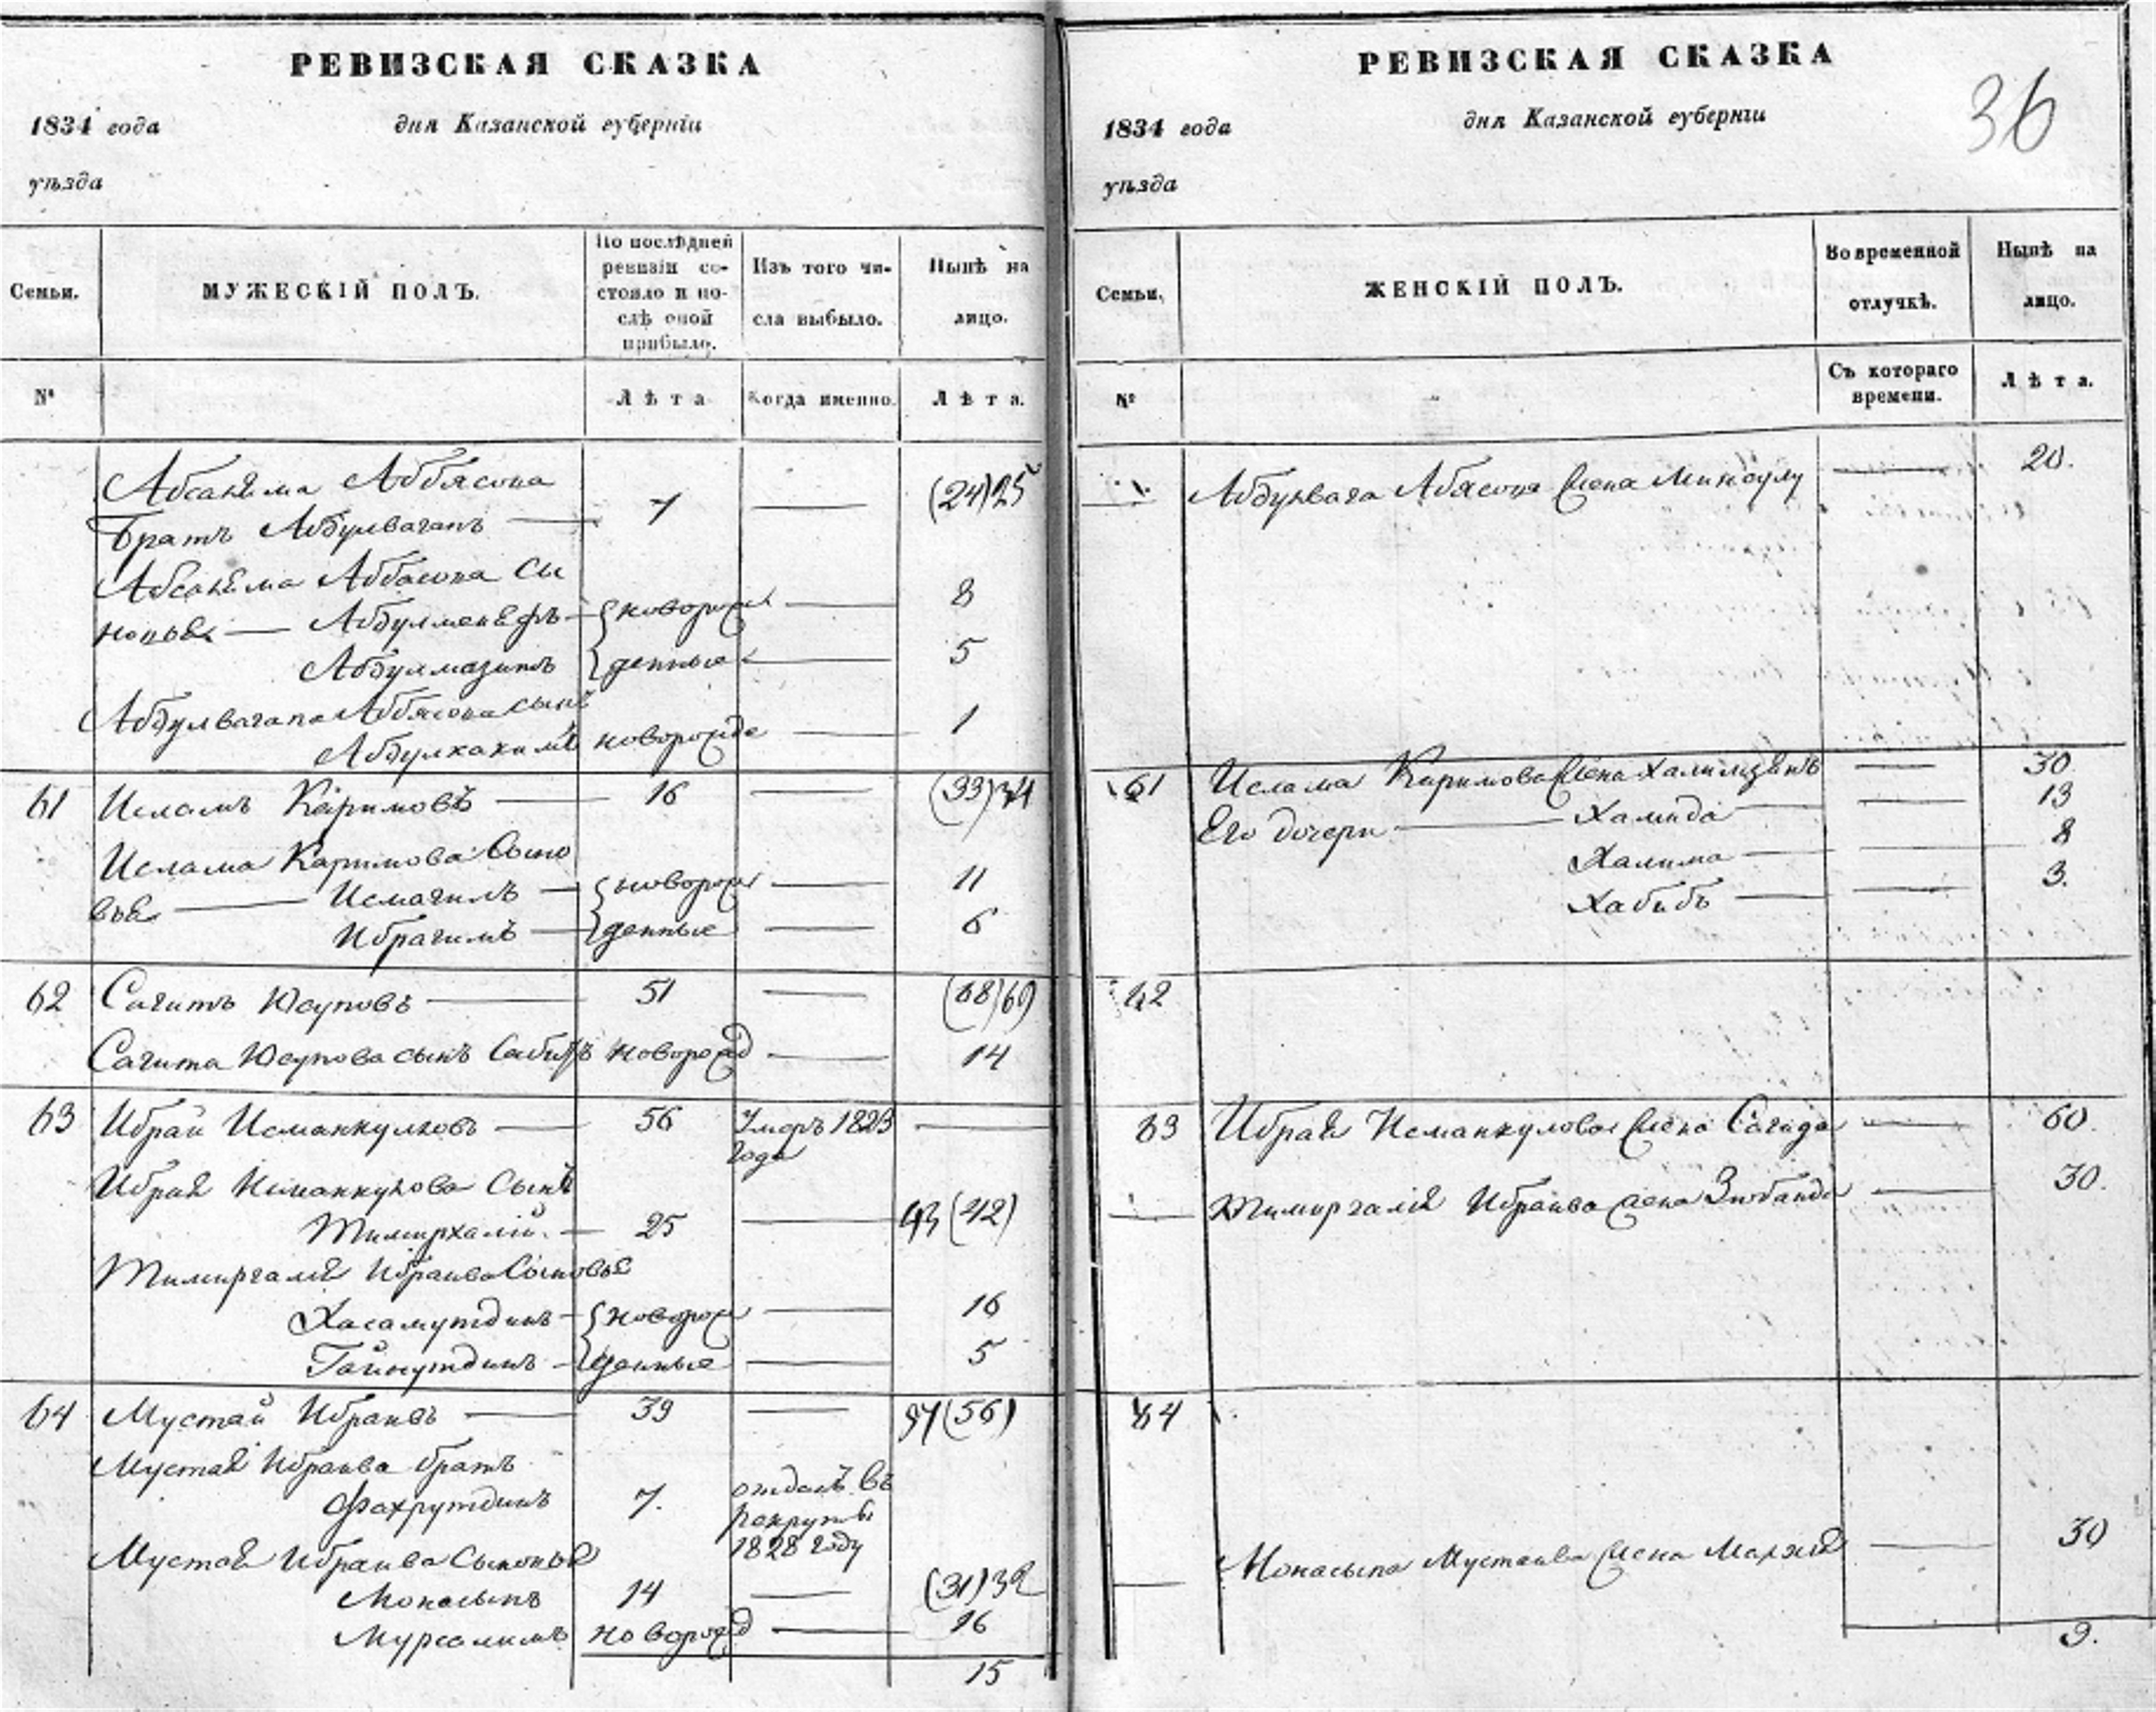 РЕВИЗСКАЯ СКАЗКА
1834 года дня Казанской губерніи
уѣзда
Семьи. МУЖЕСКІЙ ПОЛЪ. По послѣдней ревизіи состояло и послѣ оной прибыло. Изъ того числа выбыло. Нынѣ на лицо.
№ Лѣта Когда именно. Лѣта.
Абсаляма Аббясова
Братъ Абдулвагапъ 7 (24)25
Абсаляма Аббасова сы
новья Абдулменефъ новорож 8
Абдулмазитъ денные 5
Абдулвагапа Аббясова сынъ
Абдулхакимъ новорожде 1
61 Исламъ Каримовъ 16 (33)34
Ислама Каримова Сыно
вья Исмагилъ новорож 11
Ибрагимъ денные 6
62 Сагитъ Юсуповъ 51 (68)69
Сагита Юсупова сынъ Сабитъ новорожд 14
63 Ибрай Исманкуловъ 56 Умеръ 1823
года
Ибрая Исманкулова Сынъ
Тимирхалій. 25 43(42)
Тимиргалія Ибраева Сыновья
Хасамутдинъ новорож 16
Гайнутдинъ денные 5
64 Мустай Ибраевъ 39 57(56)
Мустая Ибраева братъ
Фахрутдинъ 7. отданъ въ
рекруты
1828 году
Мустая Ибраева Сыновья
Монасыпъ 14 (31)32
Мурсалимъ новорожд 16
15
РЕВИЗСКАЯ СКАЗКА
36
1834 года дня Казанской губерніи
уѣзда
Семьи. ЖЕНСКІЙ ПОЛЪ. Во временной отлучкѣ. Нынѣ на лицо.
№ Съ котораго времени. Лѣта.
Абдулвага Абясова жена Минсулу 20.
61 Ислама Каримова жена 30
Его дочери Хамида 13
Халима 8
Хабибъ 3.
62
63 Ибрая Исманкулова жена Сагида 60.
Тимиргалія Ибраева жена 30.
64
Монасыпа Мустаева жена 30
9.